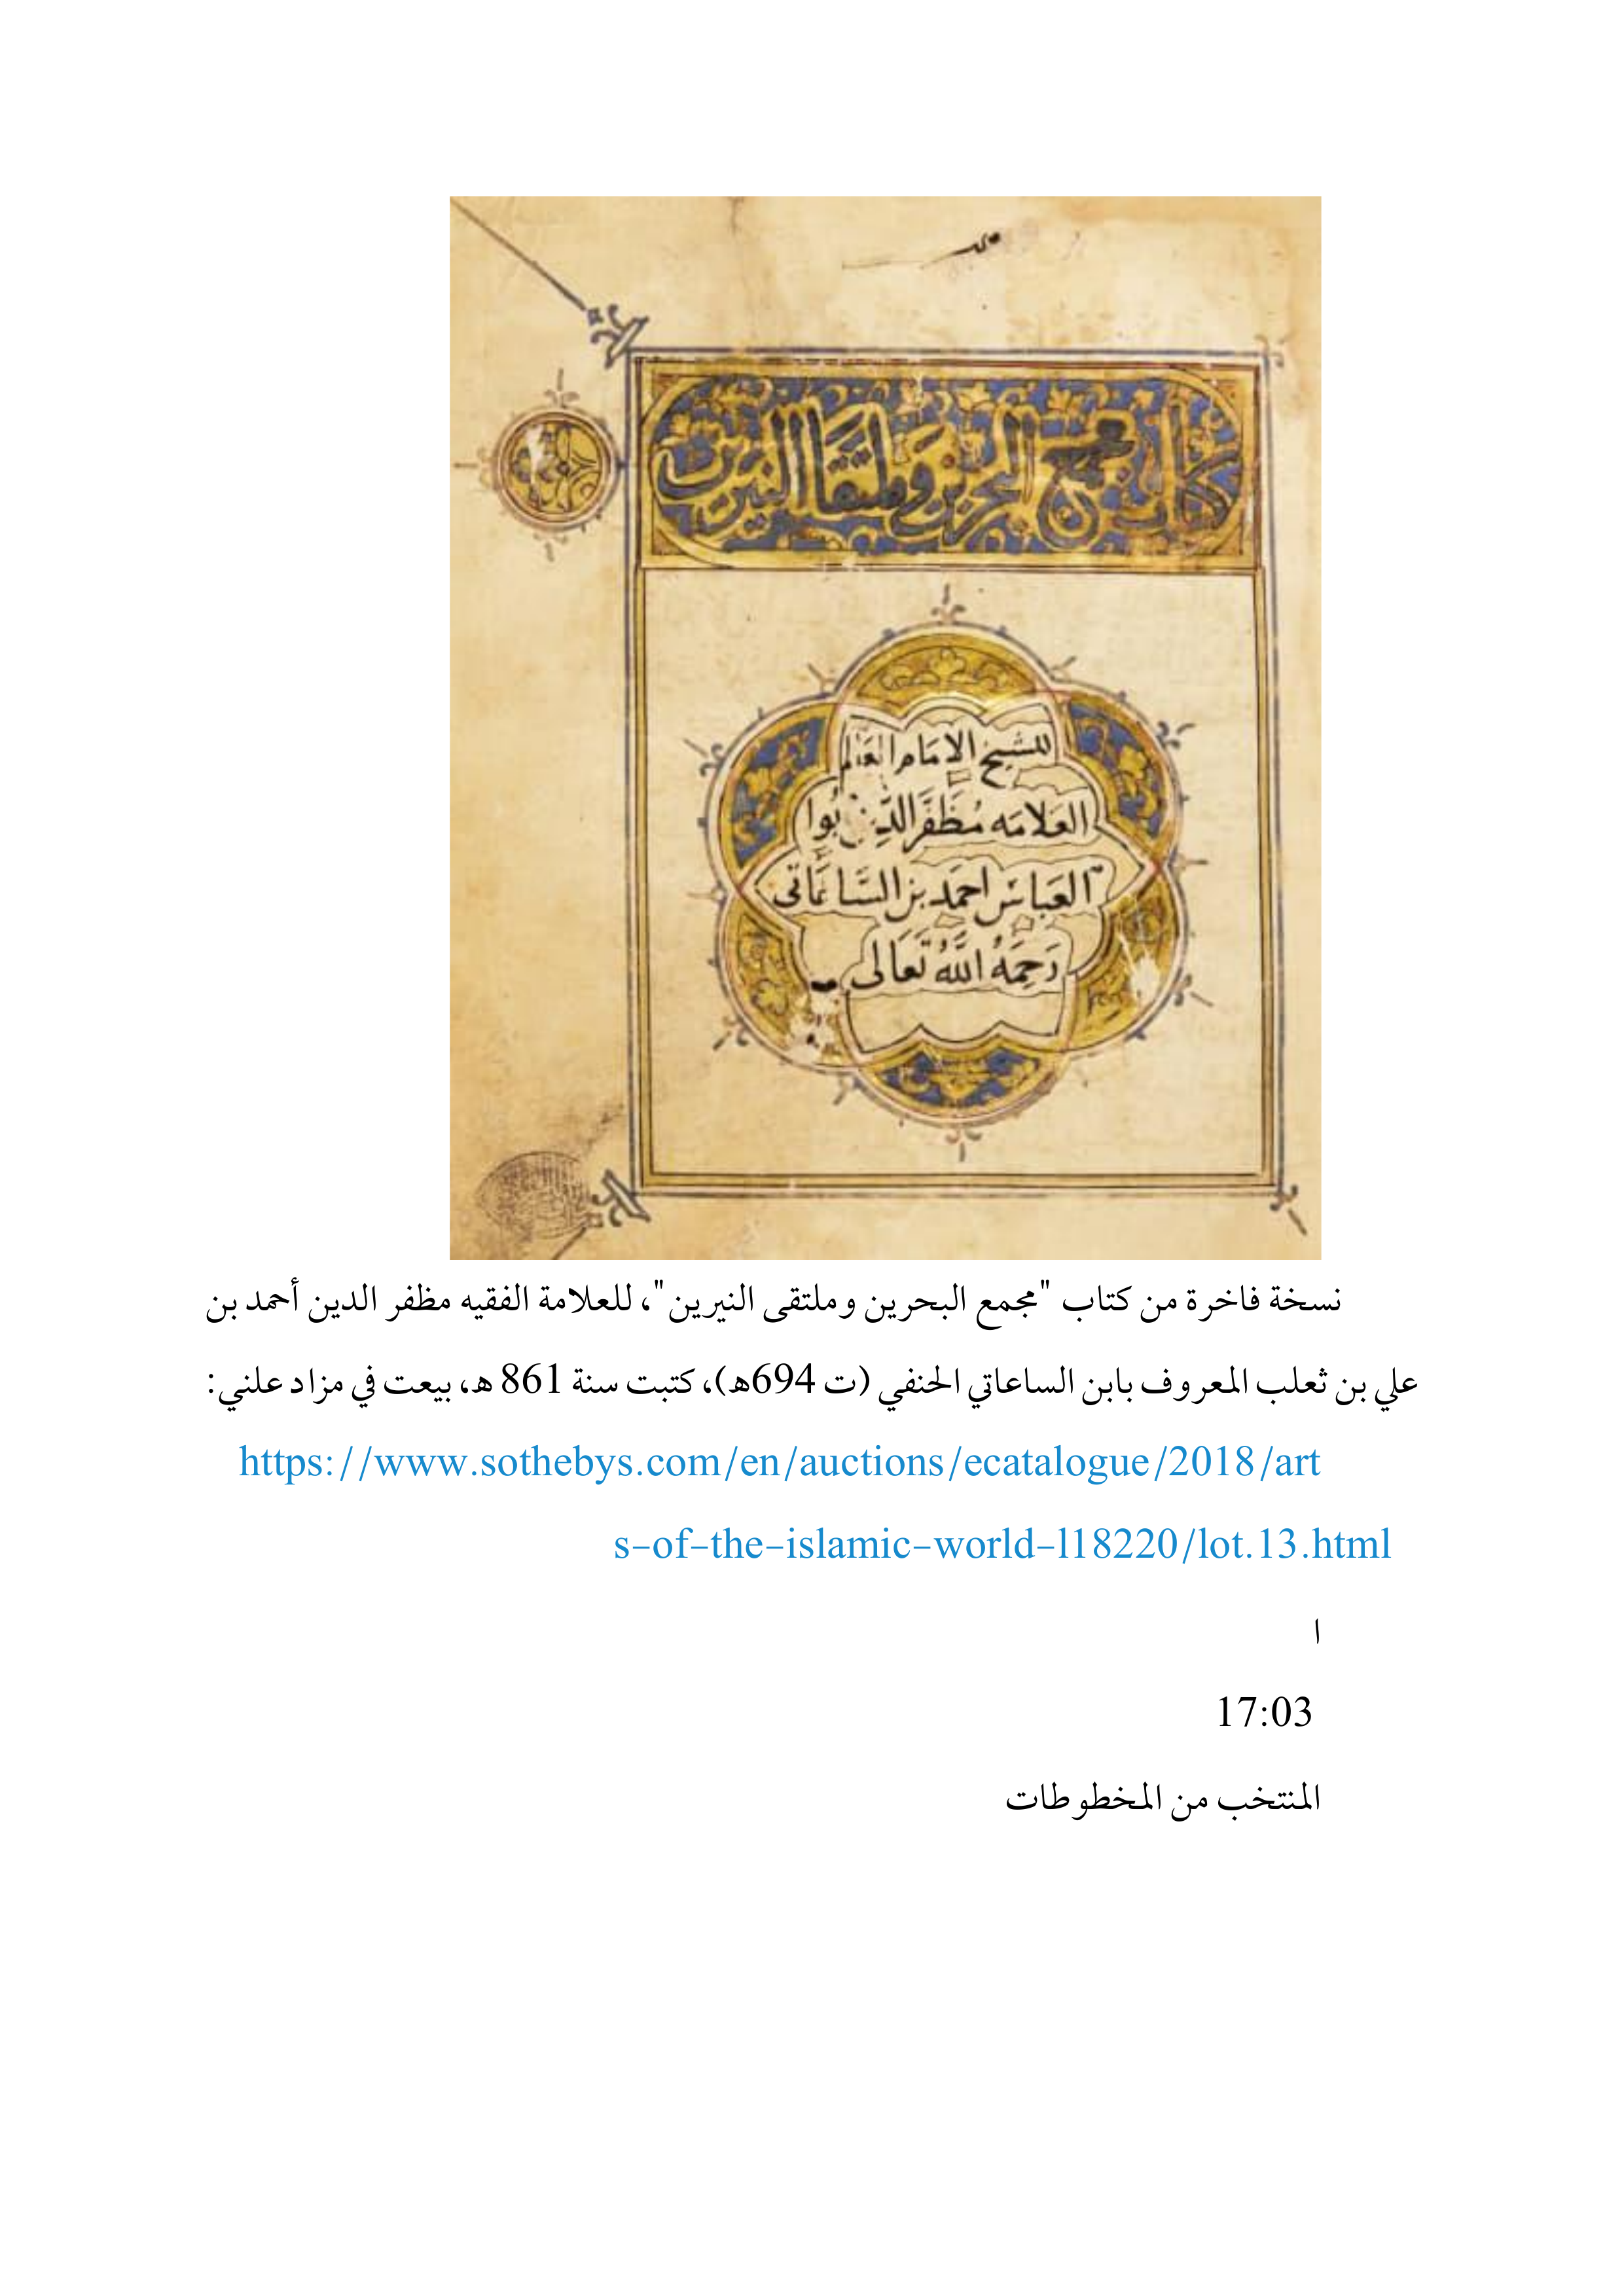 كتاب مجمع البحرين وملتقا النيرين
للشيخ الامام العالم
العلامه مظفر الدين بوا
العباس احمد بن الساعاتى
رحمه الله تعالى
نسخة فاخرة من كتاب "مجمع البحرين وملتقى النيرين"، للعلامة الفقيه مظفر الدين أحمد بن
علي بن ثعلب المعروف بابن الساعاتي الحنفي (ت 694هـ)، كتبت سنة 861 هـ، بيعت في مزاد علني:
https://www.sothebys.com/en/auctions/ecatalogue/2018/art
s-of-the-islamic-world-l18220/lot.13.html
ا
17:03
المنتخب من المخطوطات